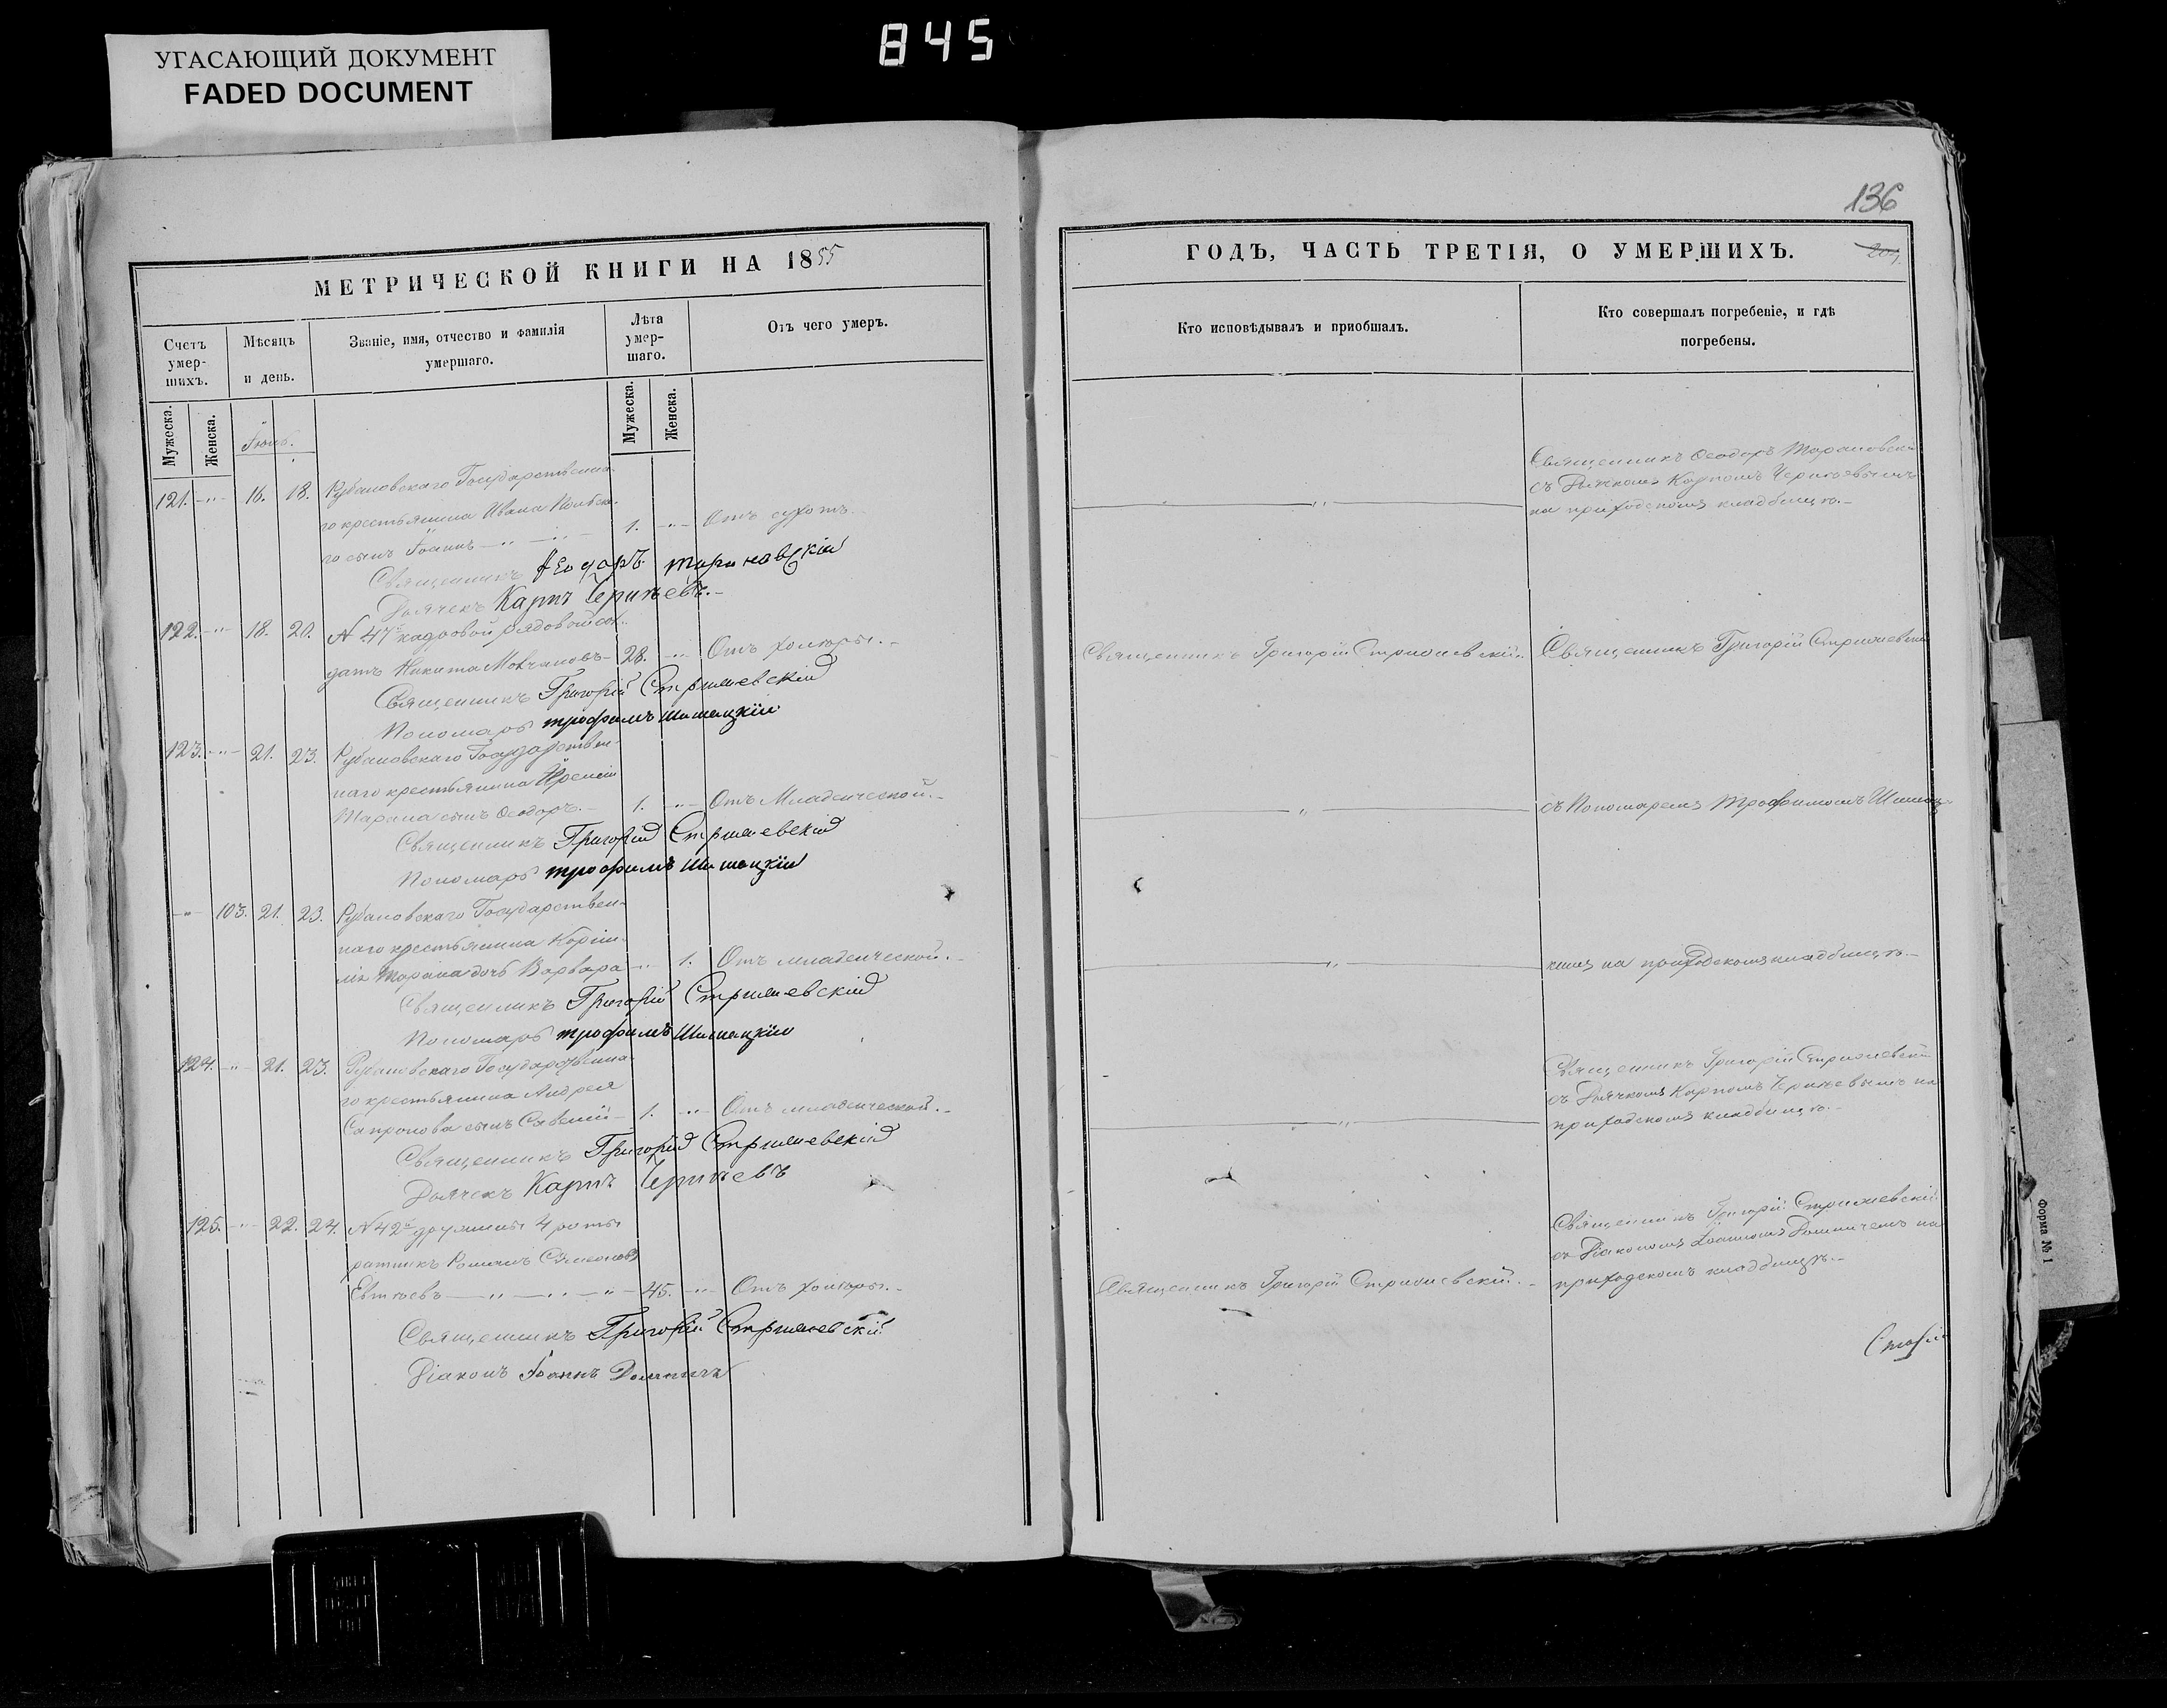 845
УГАСАЮЩИЙ ДОКУМЕНТ
FADED DOCUMENT
МЕТРИЧЕСКОЙ КНИГИ НА 1855
Счетъ умер-шихъ.
Мѣсяцъ и день.
Званіе, имя, отчество и фамилія умершаго.
Лѣта умер-шаго.
Отъ чего умеръ.
Мужеска.
Женска.
Мужеска.
Женска.
121. 16. 18. Рубановскаго Государственна-
го крестьянина Ивана
го сынъ Іоаннъ 1. Отъ сухотъ
Священникъ Ѳеодоръ Тарановскій
Дьячекъ Карпъ
122. 18. 20. № 47й кадровой рядовой сол-
датъ Никита Мовчановъ 28. Отъ холеры.
Священникъ Григорій Стрижевскій
Пономарь Трофимъ Шишацкій
123. 21. 23. Рубановскаго Государствен-
наго крестьянина
Тарана сынъ Ѳеодоръ. 1. Отъ Младенческой.
Священникъ Григорій Стрижевскій
Пономарь Трофимъ Шишацкій
103. 21. 23. Рубановскаго Государствен-
наго крестьянина Корни-
лія Тарана дочь Варвара 1. Отъ младенческой.
Священникъ Григорій Стрижевскій
Пономарь Трофимъ Шишацкій
124. 21. 23. Рубановскаго Государственна-
го крестьянина Андрея
Сапронова сынъ Савелій 1. Отъ младенческой.
Священникъ Григорій Стрижевскій
Дьячекъ Карпъ
125. 22. 24. № 42й дружины 4 роты
ратникъ Романъ Симеоновъ
Евтѣевъ 45. Отъ холеры.
Священникъ Григорій Стрижевскій
Діаконъ Іоаннъ
136
ГОДЪ, ЧАСТЬ ТРЕТІЯ, О УМЕРШИХЪ.
Кто исповѣдывалъ и приобщалъ.
Кто совершалъ погребеніе, и гдѣ
погребены.
Священникъ Ѳеодоръ Тарановскій
съ Дьячкомъ Карпомъ
на приходскомъ кладбищѣ.
Священникъ Григорій Стрижевскій. Священникъ Григорій Стрижевскій
съ Пономаремъ Трофимомъ Шишац-
кимъ на приходскомъ кладбищѣ.
Священникъ Григорій Стрижевскій
съ Дьячкомъ Карпомъ на
приходскомъ кладбищѣ.
Священникъ Григорій Стрижевскій
съ Діакономъ Іоанномъ на
Священникъ Григорій Стрижевскій. приходскомъ кладбищѣ.
Форма № 1